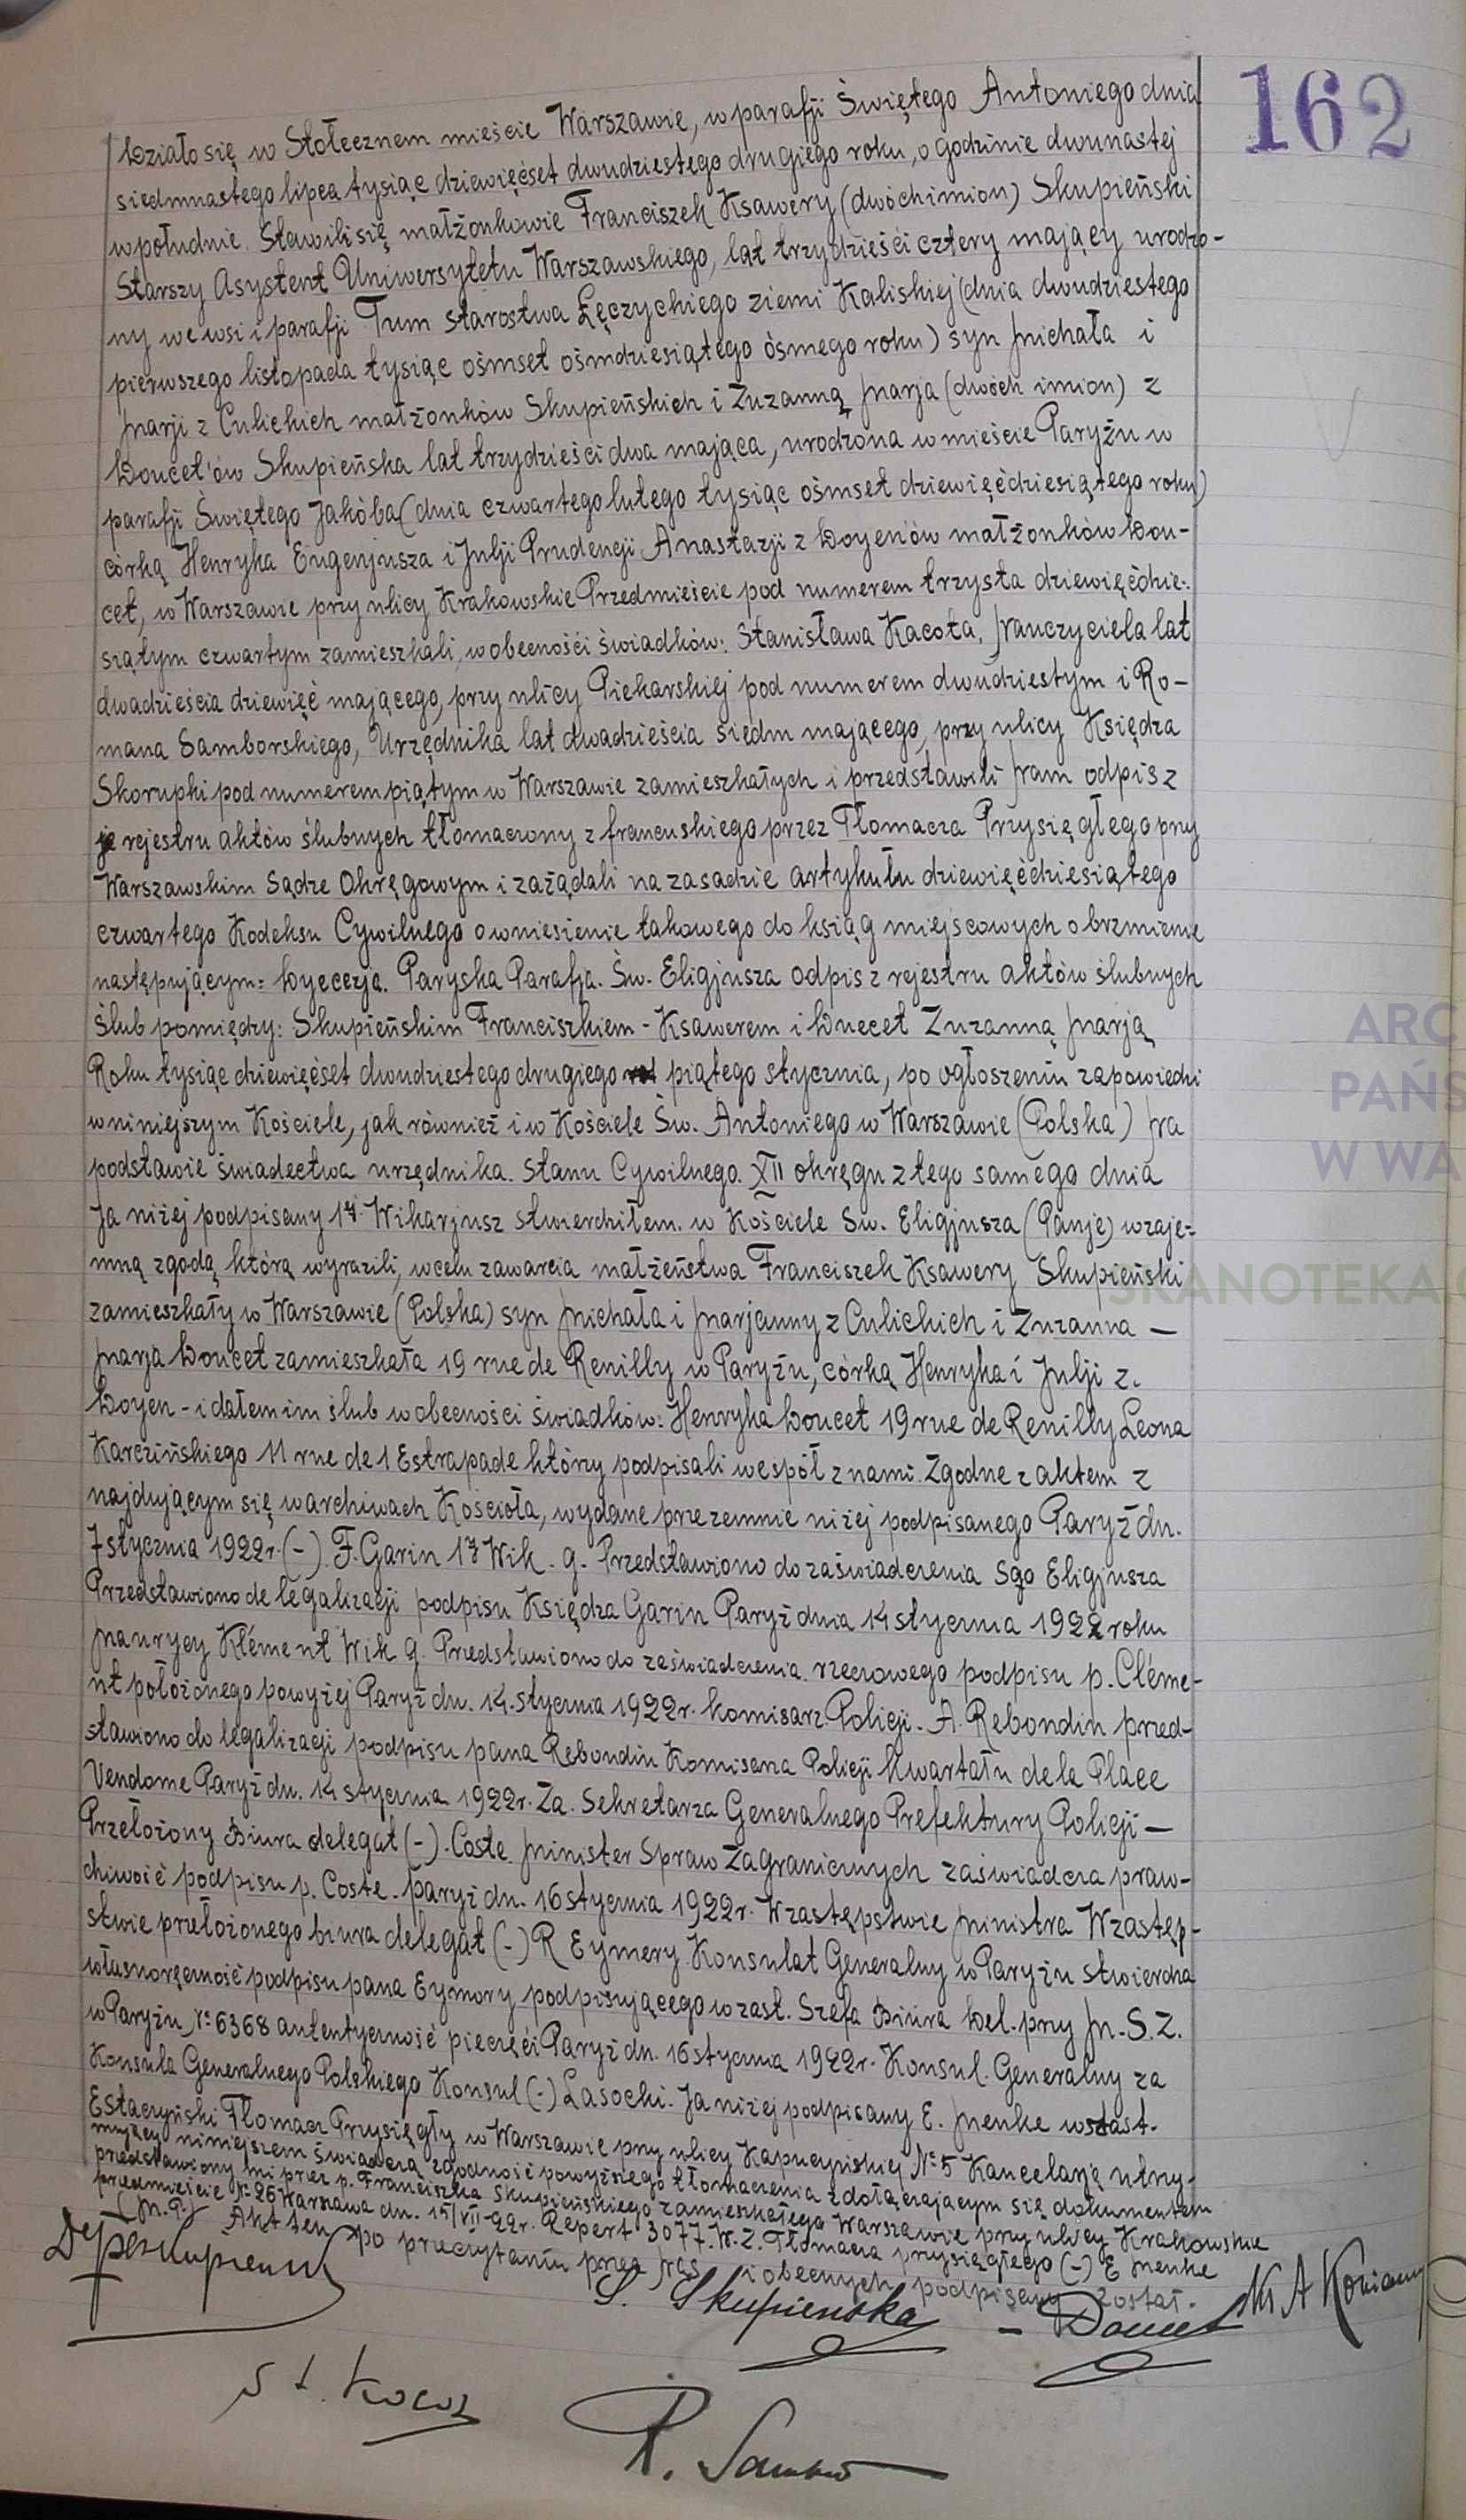 162
Działo się w Stołecznem mieście Warszawie, w parafji Świętego Antoniego dnia
siedmnastego lipca tysiąc dziewięćset dwudziestego drugiego roku, o godzinie dwunastej
w południe. Stawili się małżonkowie Franciszek Ksawery (dwóch imion) Skupieński
Starszy Asystent Uniwersytetu Warszawskiego, lat trzydzieści cztery mający urodzo-
ny we wsi i parafji Tum starostwa Łęczyckiego ziemi Kaliskiej (dnia dwudziestego
pierwszego listopada tysiąc ośmset ośmdziesiątego ósmego roku) syn Michała i
Marji z Culickich małżonków Skupieńskich i Zuzanną Marja (dwóch imion) z
Doucet'ów Skupieńska lat trzydzieści dwa mająca, urodzona w mieście Paryżu w
parafji Świętego Jakóba (dnia czwartego lutego tysiąc ośmset dziewięćdziesiątego roku)
córką Henryka Eugenjusza i Julji Prudencji Anastazji z Doyen'ów małżonków Dou-
cet, w Warszawie przy ulicy Krakowskie Przedmieście pod numerem trzysta dziewięćdzie-
siątym czwartym zamieszkali, w obecności świadków: Stanisława Kacota, Nauczyciela lat
dwadzieścia dziewięć mającego, przy ulicy Piekarskiej pod numerem dwudziestym i Ro-
mana Samborskiego, Urzędnika lat dwadzieścia siedm mającego, przy ulicy Księdza
Skorupki pod numerem piątym w Warszawie zamieszkałych i przedstawili Nam odpis z
rejestru aktów ślubnych tłomaczony z francuskiego przez Tłomacza Przysięgłego przy
Warszawskim Sądze Okręgowym i zażądali na zasadzie artykułu dziewięćdziesiątego
czwartego Kodeksu Cywilnego o wniesienie takowego do ksiąg miejscowych o brzmienie
następującym: Dyecezja. Paryska Parafja. Św. Eligjusza odpis z rejestru aktów ślubnych
Ślub pomiędzy: Skupieńskim Franciszkiem - Ksawerem i Duecet Zuzanną Marją
Roku tysiąc dziewięćset dwudziestego drugiego piątego stycznia, po ogłoszeniu zapowiedzi
w niniejszym Kościele, jak również i w Kościele Św. Antoniego w Warszawie (Polska) Na
podstawie świadectwa urzędnika. Stanu Cywilnego. XII okręgu z tego samego dnia
Ja niżej podpisany 1y Wikarjusz stwierdziłem. w Kościele Św. Eligjusza (Paryż) wzaje-
mną zgodą którą wyrazili, w celu zawarcia małżeństwa Franciszek Ksawery Skupieński
zamieszkały w Warszawie (Polska) syn Michała i Marjanny z Culickich i Zuzanna —
Marja Doucet zamieszkała 19 rue de Renilly w Paryżu, córką Henryka i Julji z.
Doyen - i dałem im ślub w obecności świadków: Henryka Doucet 19 rue de Renilly Leona
Karczińskiego 11 rue de l Estrapade którzy podpisali wespół z nami. Zgodne z aktem z
najdującym się w archiwach Kościoła, wydane przezemnie niżej podpisanego Paryż dn.
7 stycznia 1922r. (-). F. Garin 1y Wik. g. Przedstawiono do zaświadczenia Sgo Eligjusza
Przedstawiono de legalizacji podpisu Księdza Garin Paryż dnia 14 stycznia 1922 roku
Maurycy Klément Wik g. Przedstawiono do zaświadczenia rzeczowego podpisu p. Cléme-
nt położonego powyżej Paryż dn. 14. stycznia 1922r. komisarz. Policji. A. Rebondin przed-
stawiono do legalizacji podpisu pana Rebondin Komisarza Policji kwartału de la Place
Vendome Paryż dn. 14 stycznia 1922r. Za. Sekretarza Generalnego Prefektury Policji —
Przełożony Biura delegat (-). Coste. Minister Spraw Zagranicznych zaświadcza praw-
dziwość podpisu p. Coste. paryż dn. 16 stycznia 1922r. W zastępstwie Ministra W zastęp-
stwie przełożonego biura delegat (-) R Eymery. Konsulat Generalny w Paryżu stwierdza
własnoręczność podpisu pana Eymory podpisującego w zast. Szefa Biura Del. przy M. S. Z.
w Paryżu, № 6368 autentyczność pieczęci Paryż dn. 16 stycznia 1922r. Konsul. Generalny za
Konsula Generalnego Polskiego Konsul (-) Lasocki. Ja niżej podpisany E. Menke w zast.
Estaczyński Tłomacz Przysięgły w Warszawie przy ulicy Kapucyńskiej № 5 Kancelarję utrzy-
mujący niniejszem świadczą zgodność powyższego tłomaczenia z dołączającym się dokumentem
przedstawiony mi przez p. Franciszka Skupieńskiego zamieszkałego Warszawie przy ulicy Krakowskie
przedmieście № 26 Warszawa dn. 15/VII-22r. Repert 3077. W. Z. Tłomacza przysięgłego (-) E Menke
(M. P.) Akt ten po przeczytaniu przez Nas i obecnych podpisany został.
S. Skupienska - Doucet
St. Kacot
R. Sambor
ARC
PAŃS
W WA
SKANOTEKA